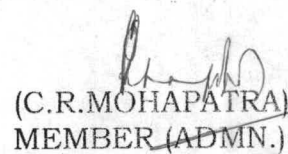 (C.R.MOHAPATRA)
MEMBER (ADMN.)